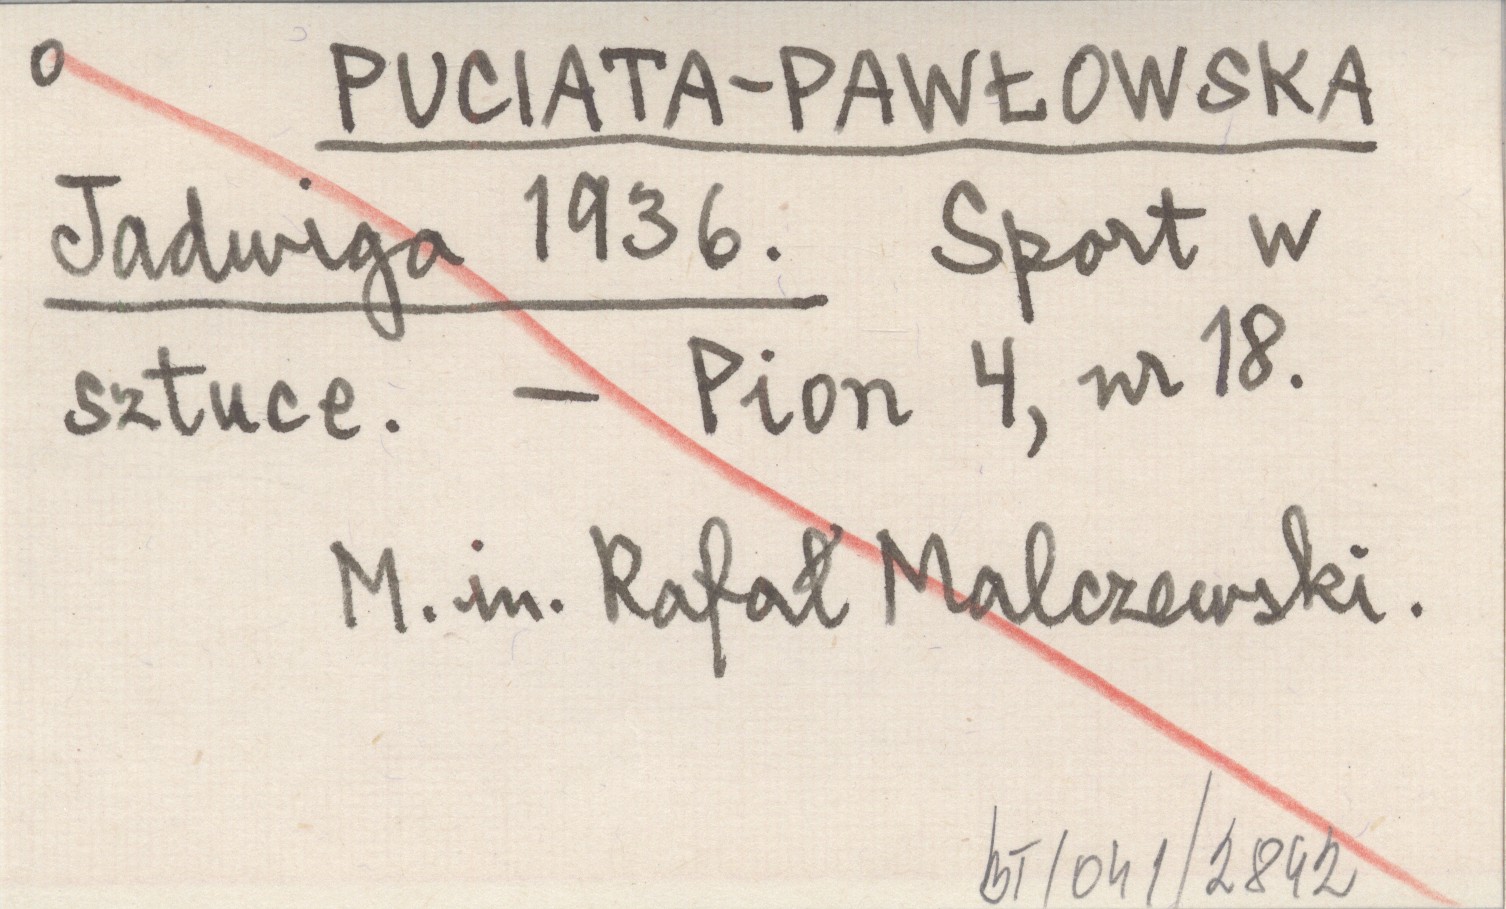 o PUCIATA-PAWŁOWSKA
Jadwiga 1936. Sport w
sztuce. — Pion 4, nr 18.
M. in. Rafał Malczewski.
BT/041/2892